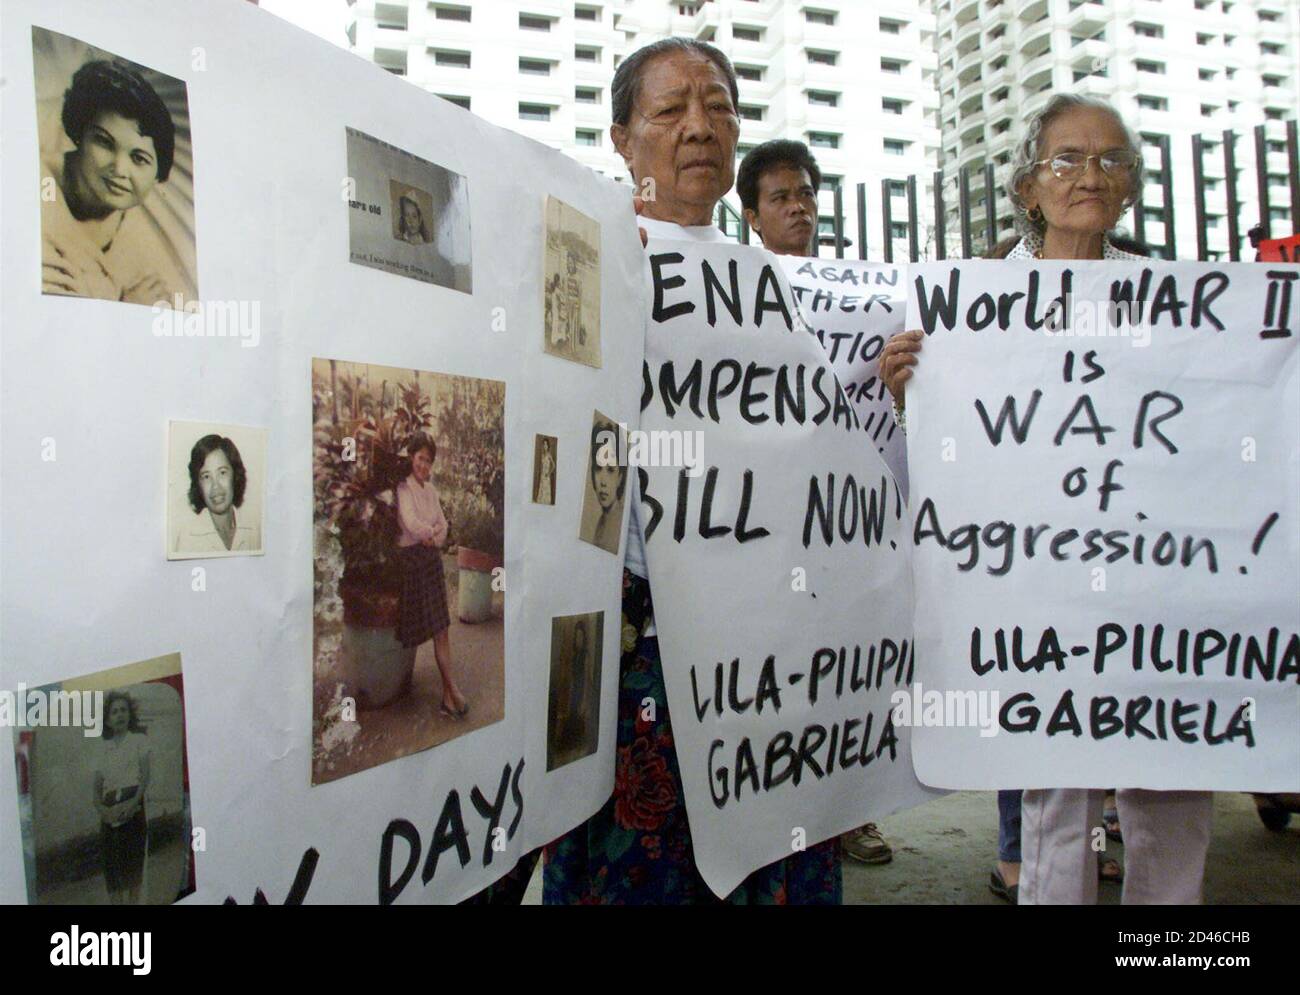 ears old
I was working
DAYS
ENA
OMPENSA
BILL NOW!
LILA-PILIPI
GABRIELA
AGAIN
THER
!!!
World WAR II
is
WAR
of
Aggression!
LILA-PILIPINA
GABRIELA
a
alamy
Image ID: 2D46CHB
www.alamy.com